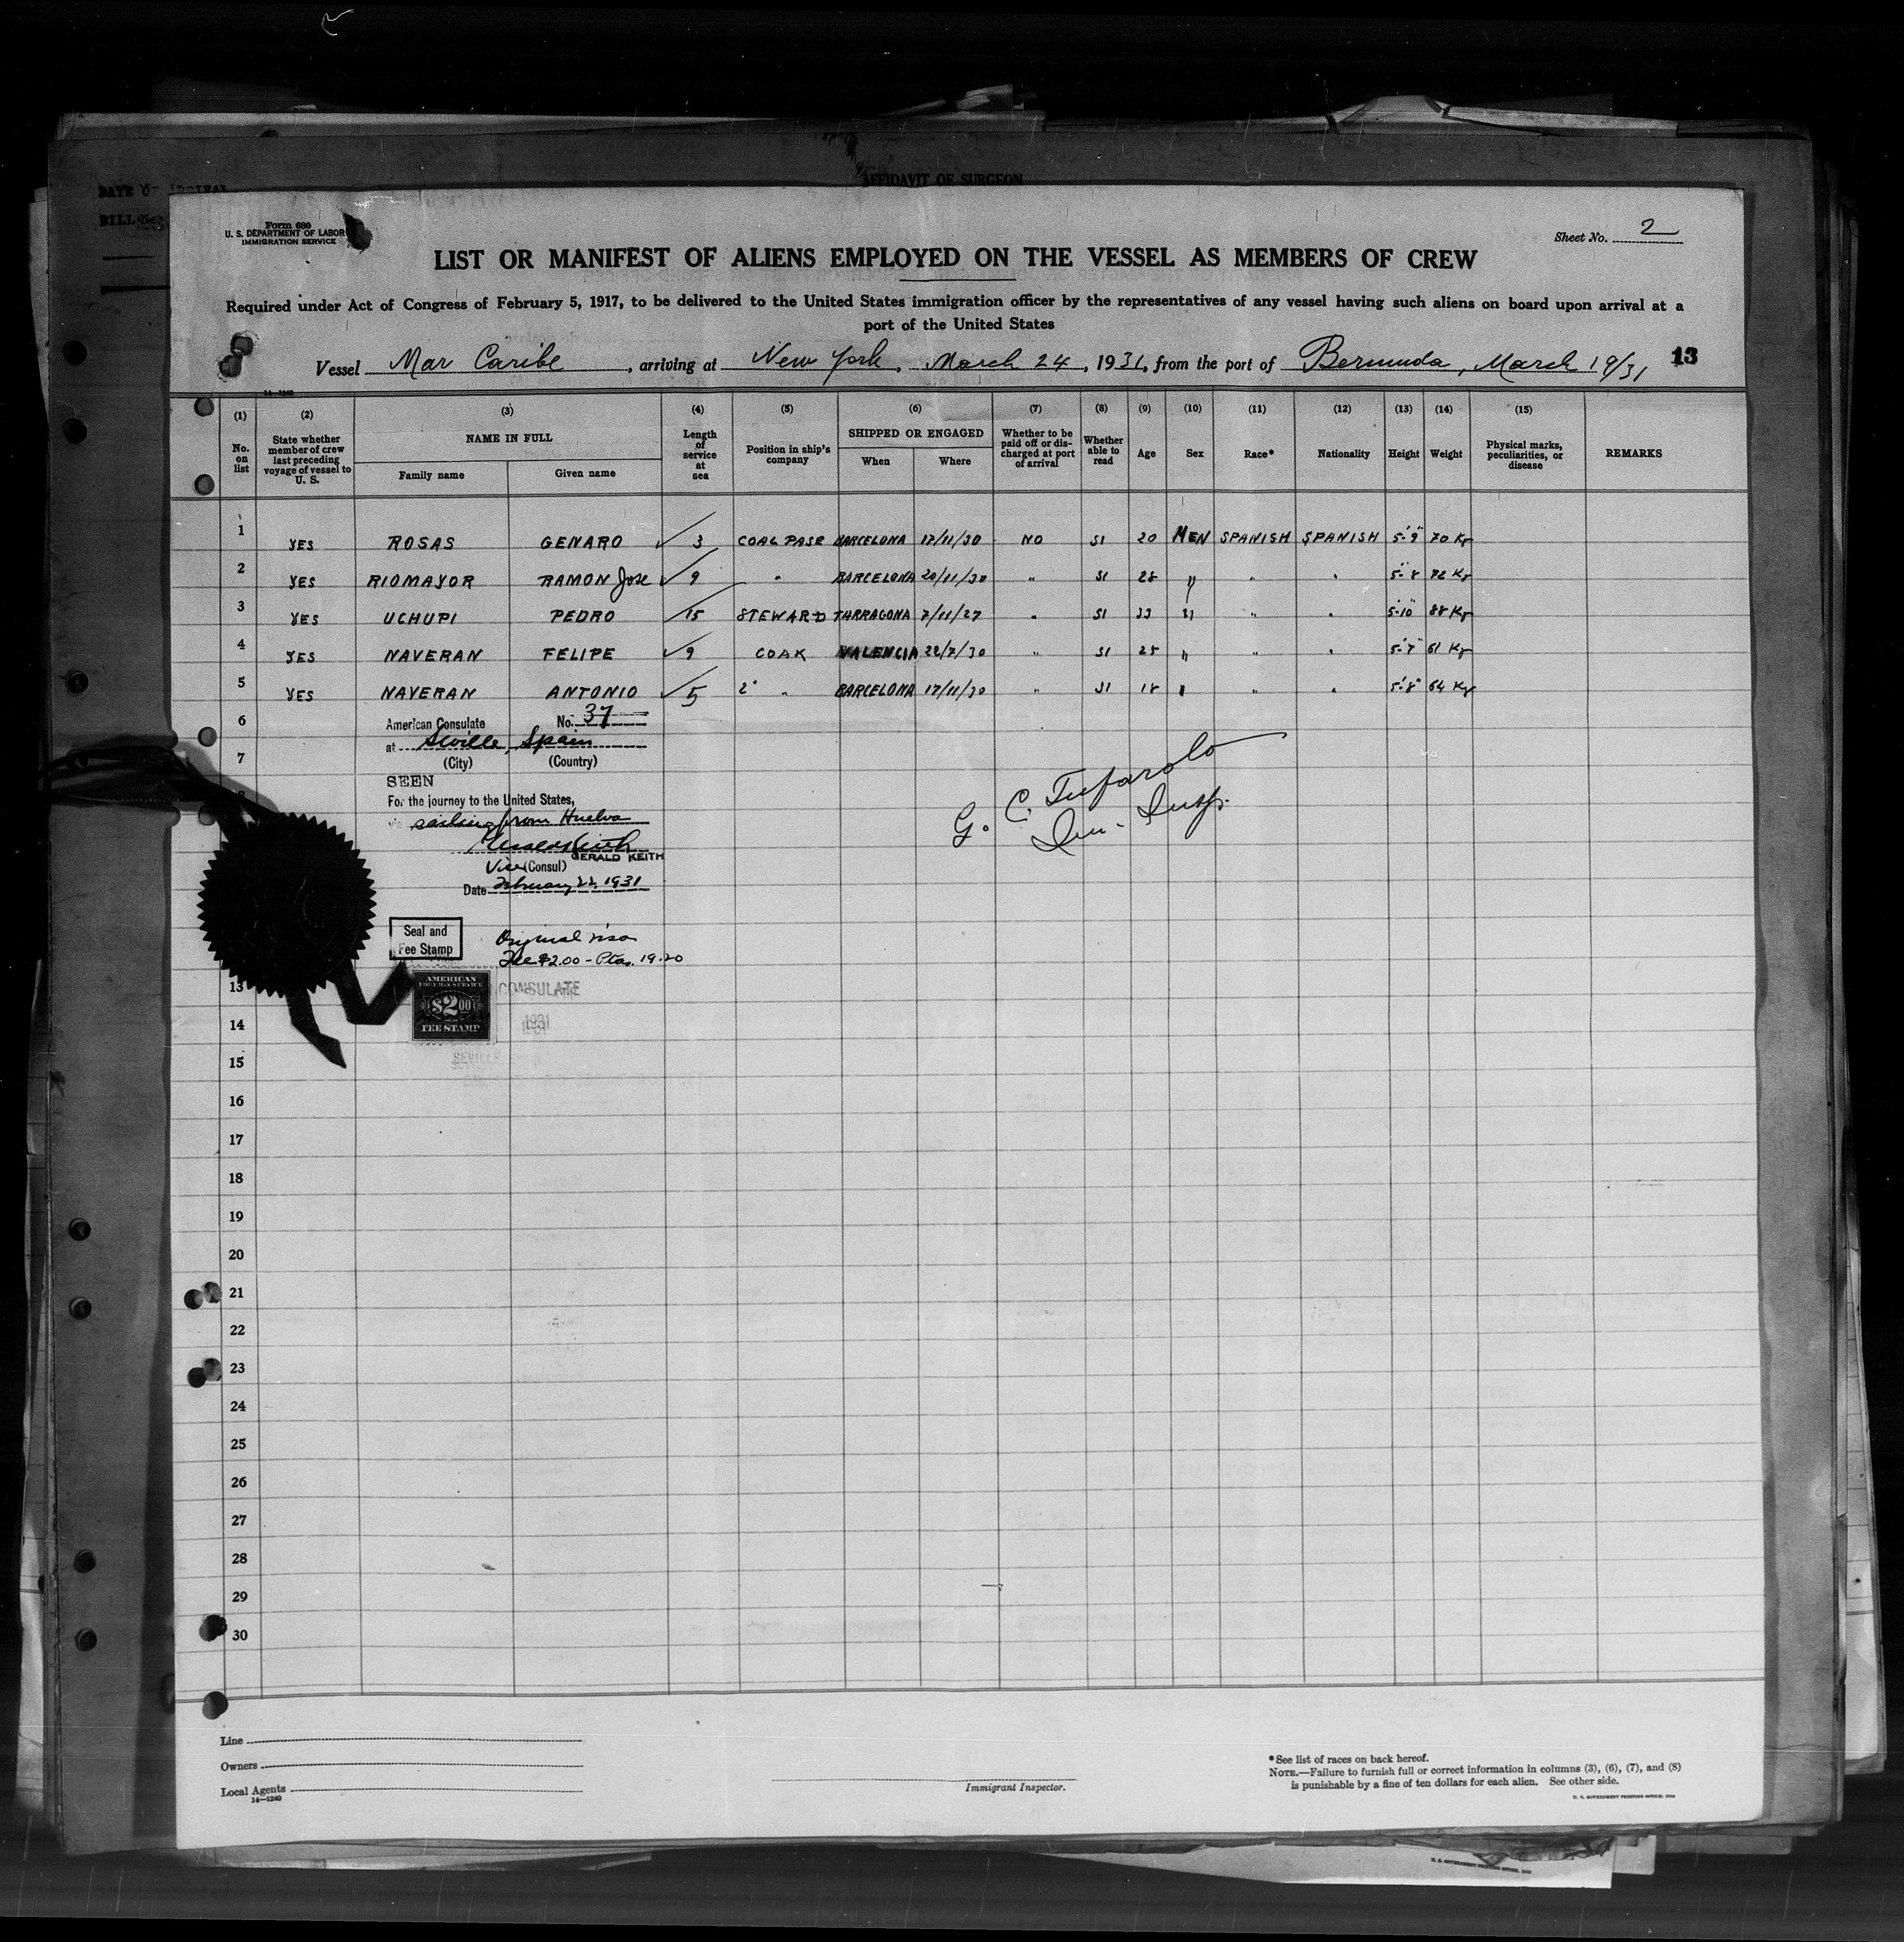 AFFIDAVIT OF SURGEON
Form 680
U. S. DEPARTMENT OF LABOR
IMMIGRATION SERVICE
Sheet No. 2
LIST OR MANIFEST OF ALIENS EMPLOYED ON THE VESSEL AS MEMBERS OF CREW
Required under Act of Congress of February 5, 1917, to be delivered to the United States immigration officer by the representatives of any vessel having such aliens on board upon arrival at a
port of the United States
Vessel Mar Caribe, arriving at New York, March 24, 1931, from the port of Bermuda, March 19/31 13
14—1240
(1) (2) (3) (4) (5) (6) (7) (8) (9) (10) (11) (12) (13) (14) (15)
No. on list State whether member of crew last preceding voyage of vessel to U. S. NAME IN FULL Family name Given name Length of service at sea Position in ship's company SHIPPED OR ENGAGED When Where Whether to be paid off or discharged at port of arrival Whether able to read Age Sex Race* Nationality Height Weight Physical marks, peculiarities, or disease REMARKS
1 YES ROSAS GENARO 3 COAL PASR BARCELONA 17/11/30 NO SI 20 MEN SPANISH SPANISH 5'-9" 70 Kg
2 YES RIOMAYOR RAMON Jose 9 " BARCELONA 20/11/30 " SI 28 " " " 5'-8 72 Kg
3 YES UCHUPI PEDRO 15 STEWARD TARRAGONA 7/11/27 " SI 33 " " " 5'-10" 88 Kg
4 YES NAVERAN FELIPE 9 COAK VALENCIA 22/7/30 " SI 25 " " " 5'-7" 61 Kg
5 YES NAVERAN ANTONIO 5 2° " BARCELONA 17/11/30 " SI 18 " " " 5'-8" 64 Kg
6
American Consulate No. 37
at Seville, Spain
7
(City) (Country)
SEEN
For the journey to the United States,
sailing from Huelva
GERALD KEITH
Vice (Consul)
Date February 22, 1931
G. C. Tufarolo
Imm. Insp.
Seal and
Fee Stamp
Original visa
Fee $2.00 - Ptas. 19.20
AMERICAN
FOREIGN SERVICE
$2.00
FEE STAMP
CONSULATE
1931
SEVILLE
13
14
15
16
17
18
19
20
21
22
23
24
25
26
27
28
29
30
Line
Owners
Local Agents
14—1240
Immigrant Inspector.
*See list of races on back hereof.
NOTE.—Failure to furnish full or correct information in columns (3), (6), (7), and (8)
is punishable by a fine of ten dollars for each alien. See other side.